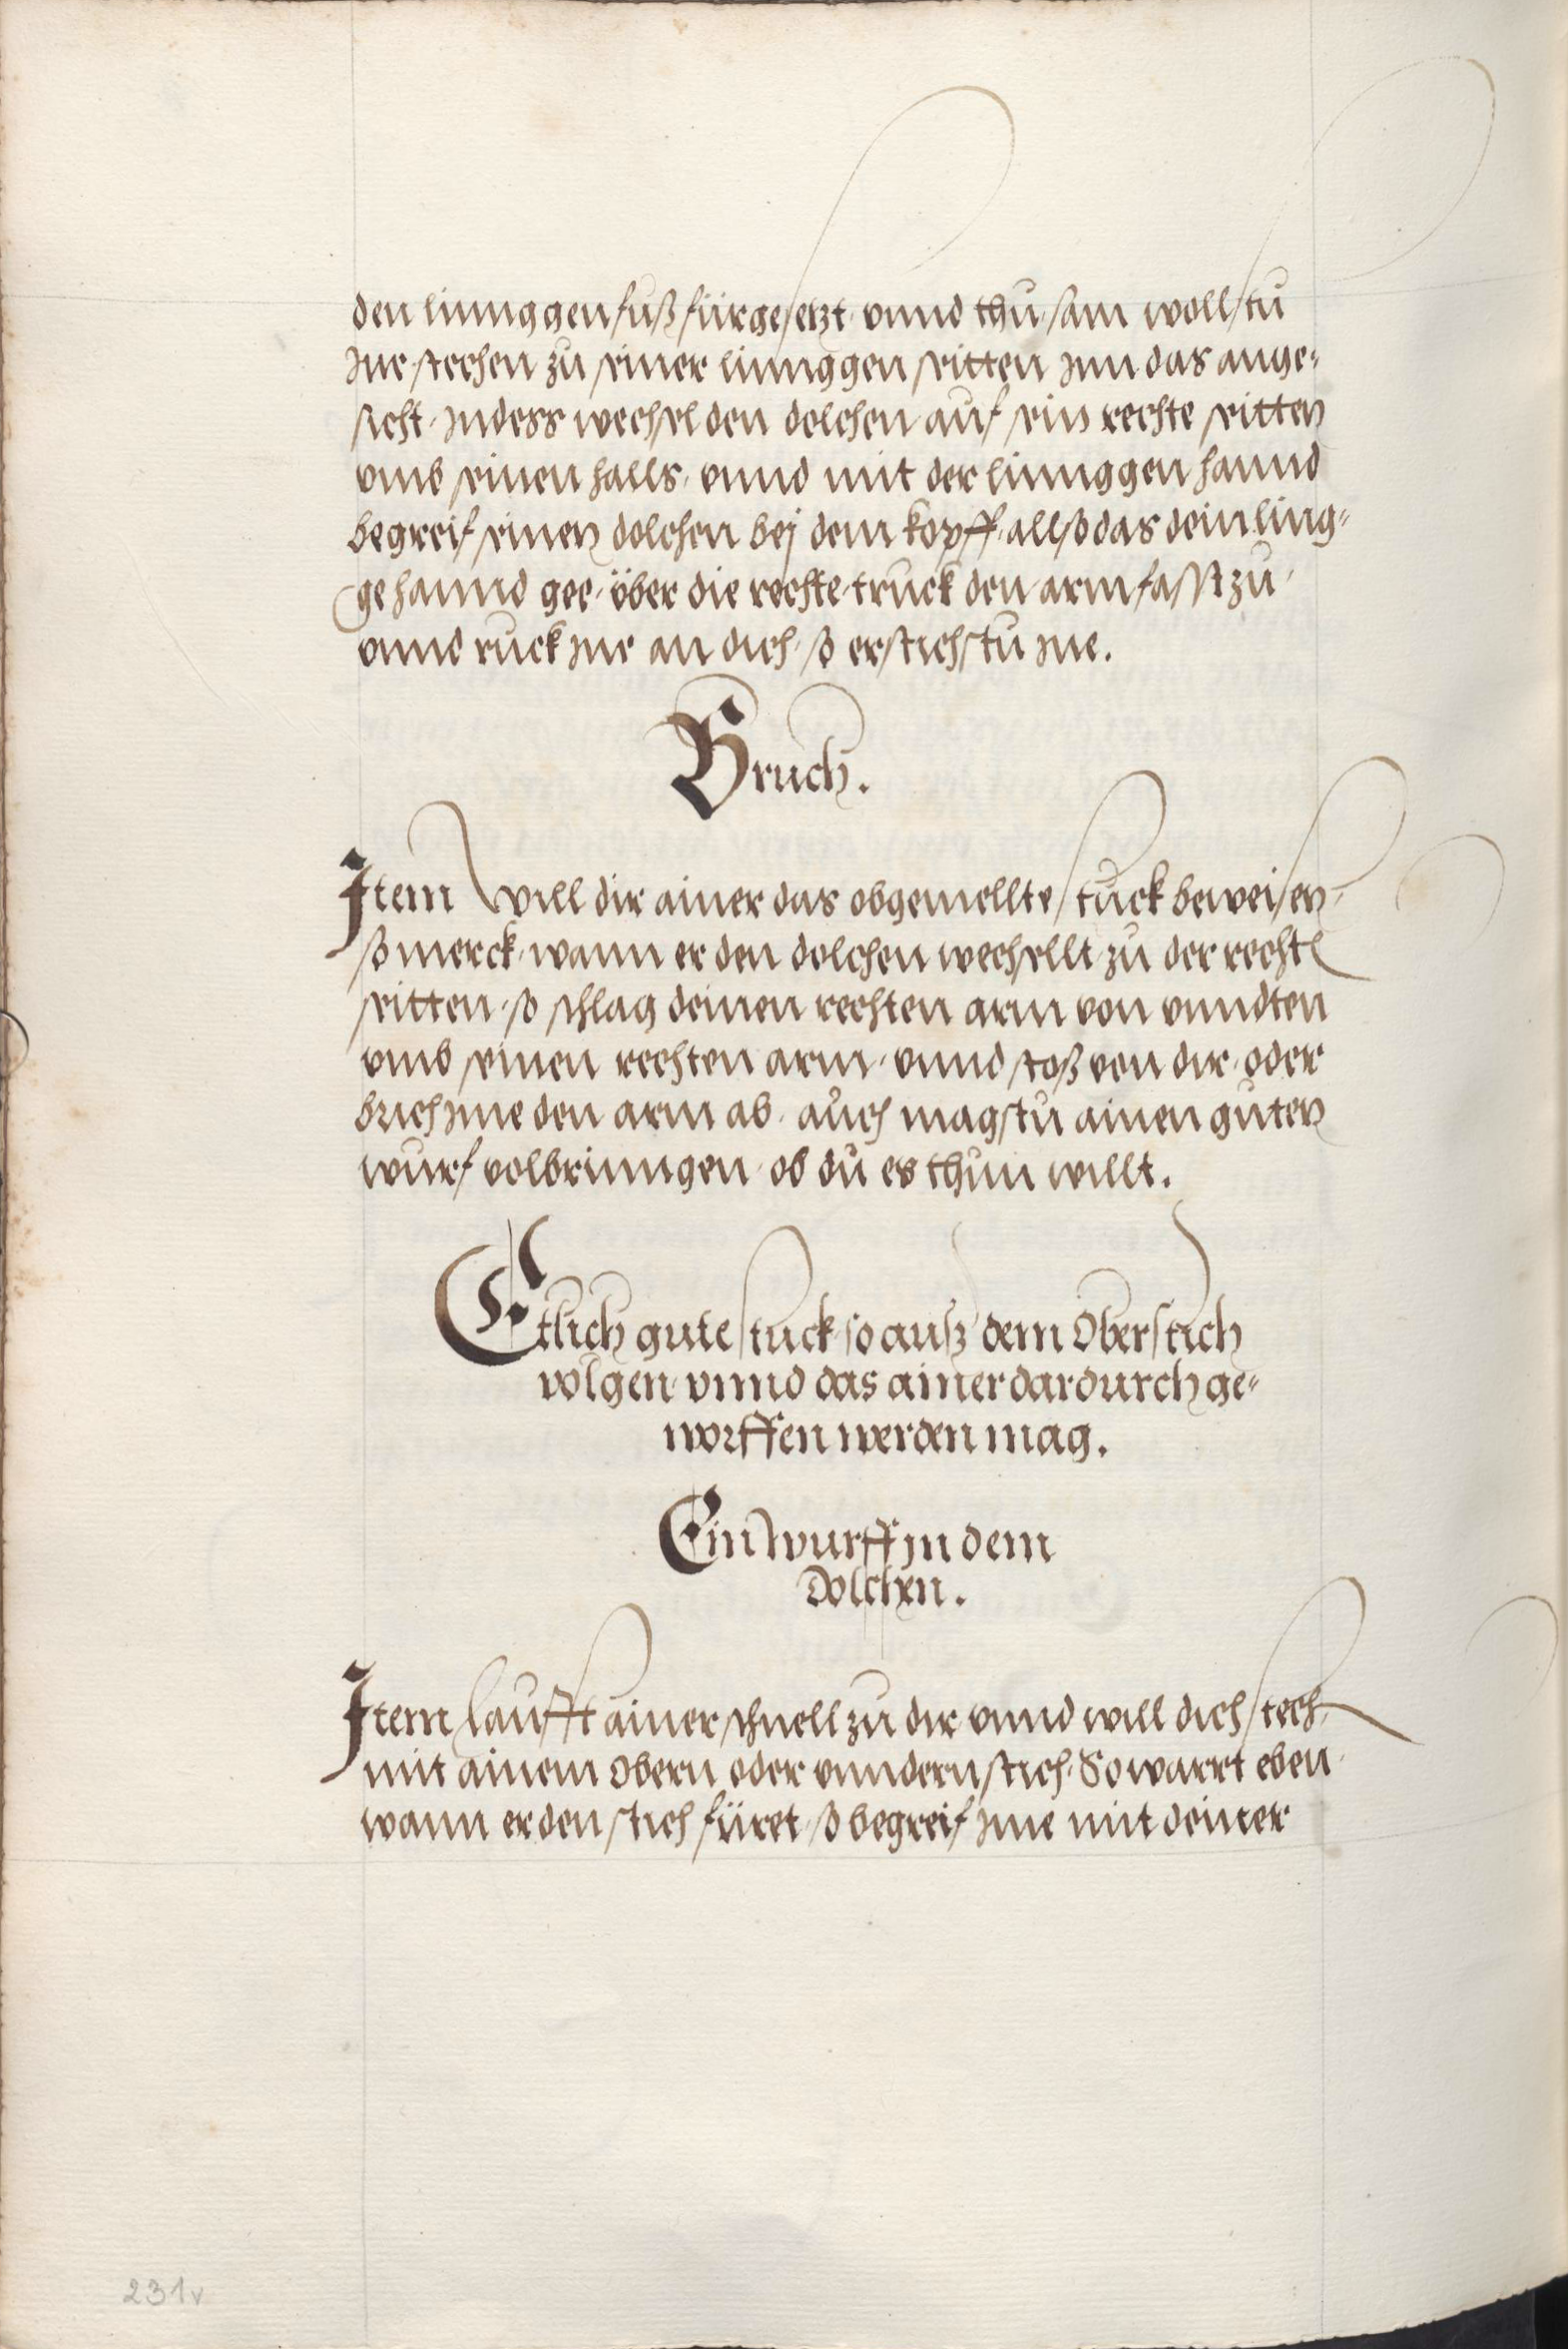 den linnggen fuß fürgesetzt vnnd thu sam wollstu
Jne stechen zu seiner linnggen seitten Jnn das ange-
sicht Jndess wechsel den dolchen auf sein rechte seitten
vmb seinen halls vnnd mit der linnggen hannd
begreif seinen dolchen bej dem kopff allso das dein ling-
ge hannd gee über die rechte truck den arm fasst zu
vnnd ruck Jne an dich so erstichstu Jne.
Bruch.
Jtem will dir ainer das obgemellte stuck beweisen
so merck wann er den dolchen wechsellt zu der recht
seitten so schlag deinen rechten arm von vnndten
vmb seinen rechten arm vnnd stoß von dir oder
brich Jme den arm ab auch magstu ainen guten
wurf volbrinngen ob du es thun willt.
Etlich gute stuck so auß dem Oberstich
volgen vnnd das ainer dardurch ge-
worffen werden mag.
Ein wurff jn dem
dolchen.
Jtem laufft ainer schnell zu dir vnnd will dich stech
mit ainem Obern oder vnndern stich So warrt eben
wann er den stich füret so begreif Jme mit deiner
231v